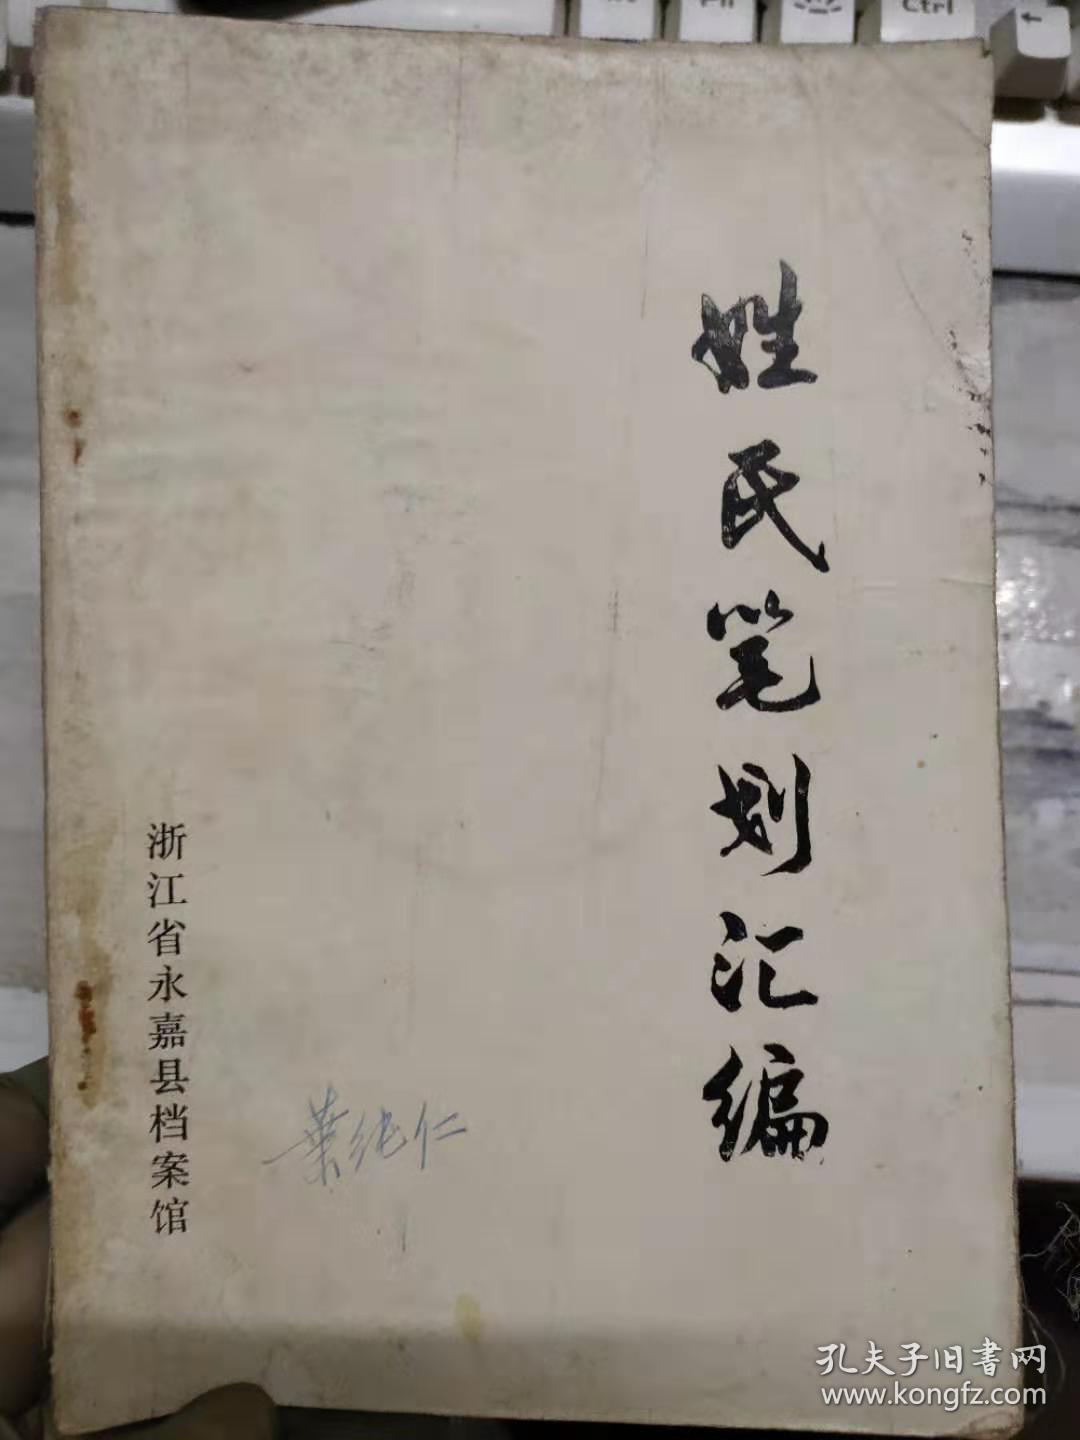 Ctrl
姓氏笔划汇编
浙江省永嘉县档案馆
葉纯仁
孔夫子旧書网
www.kongfz.com